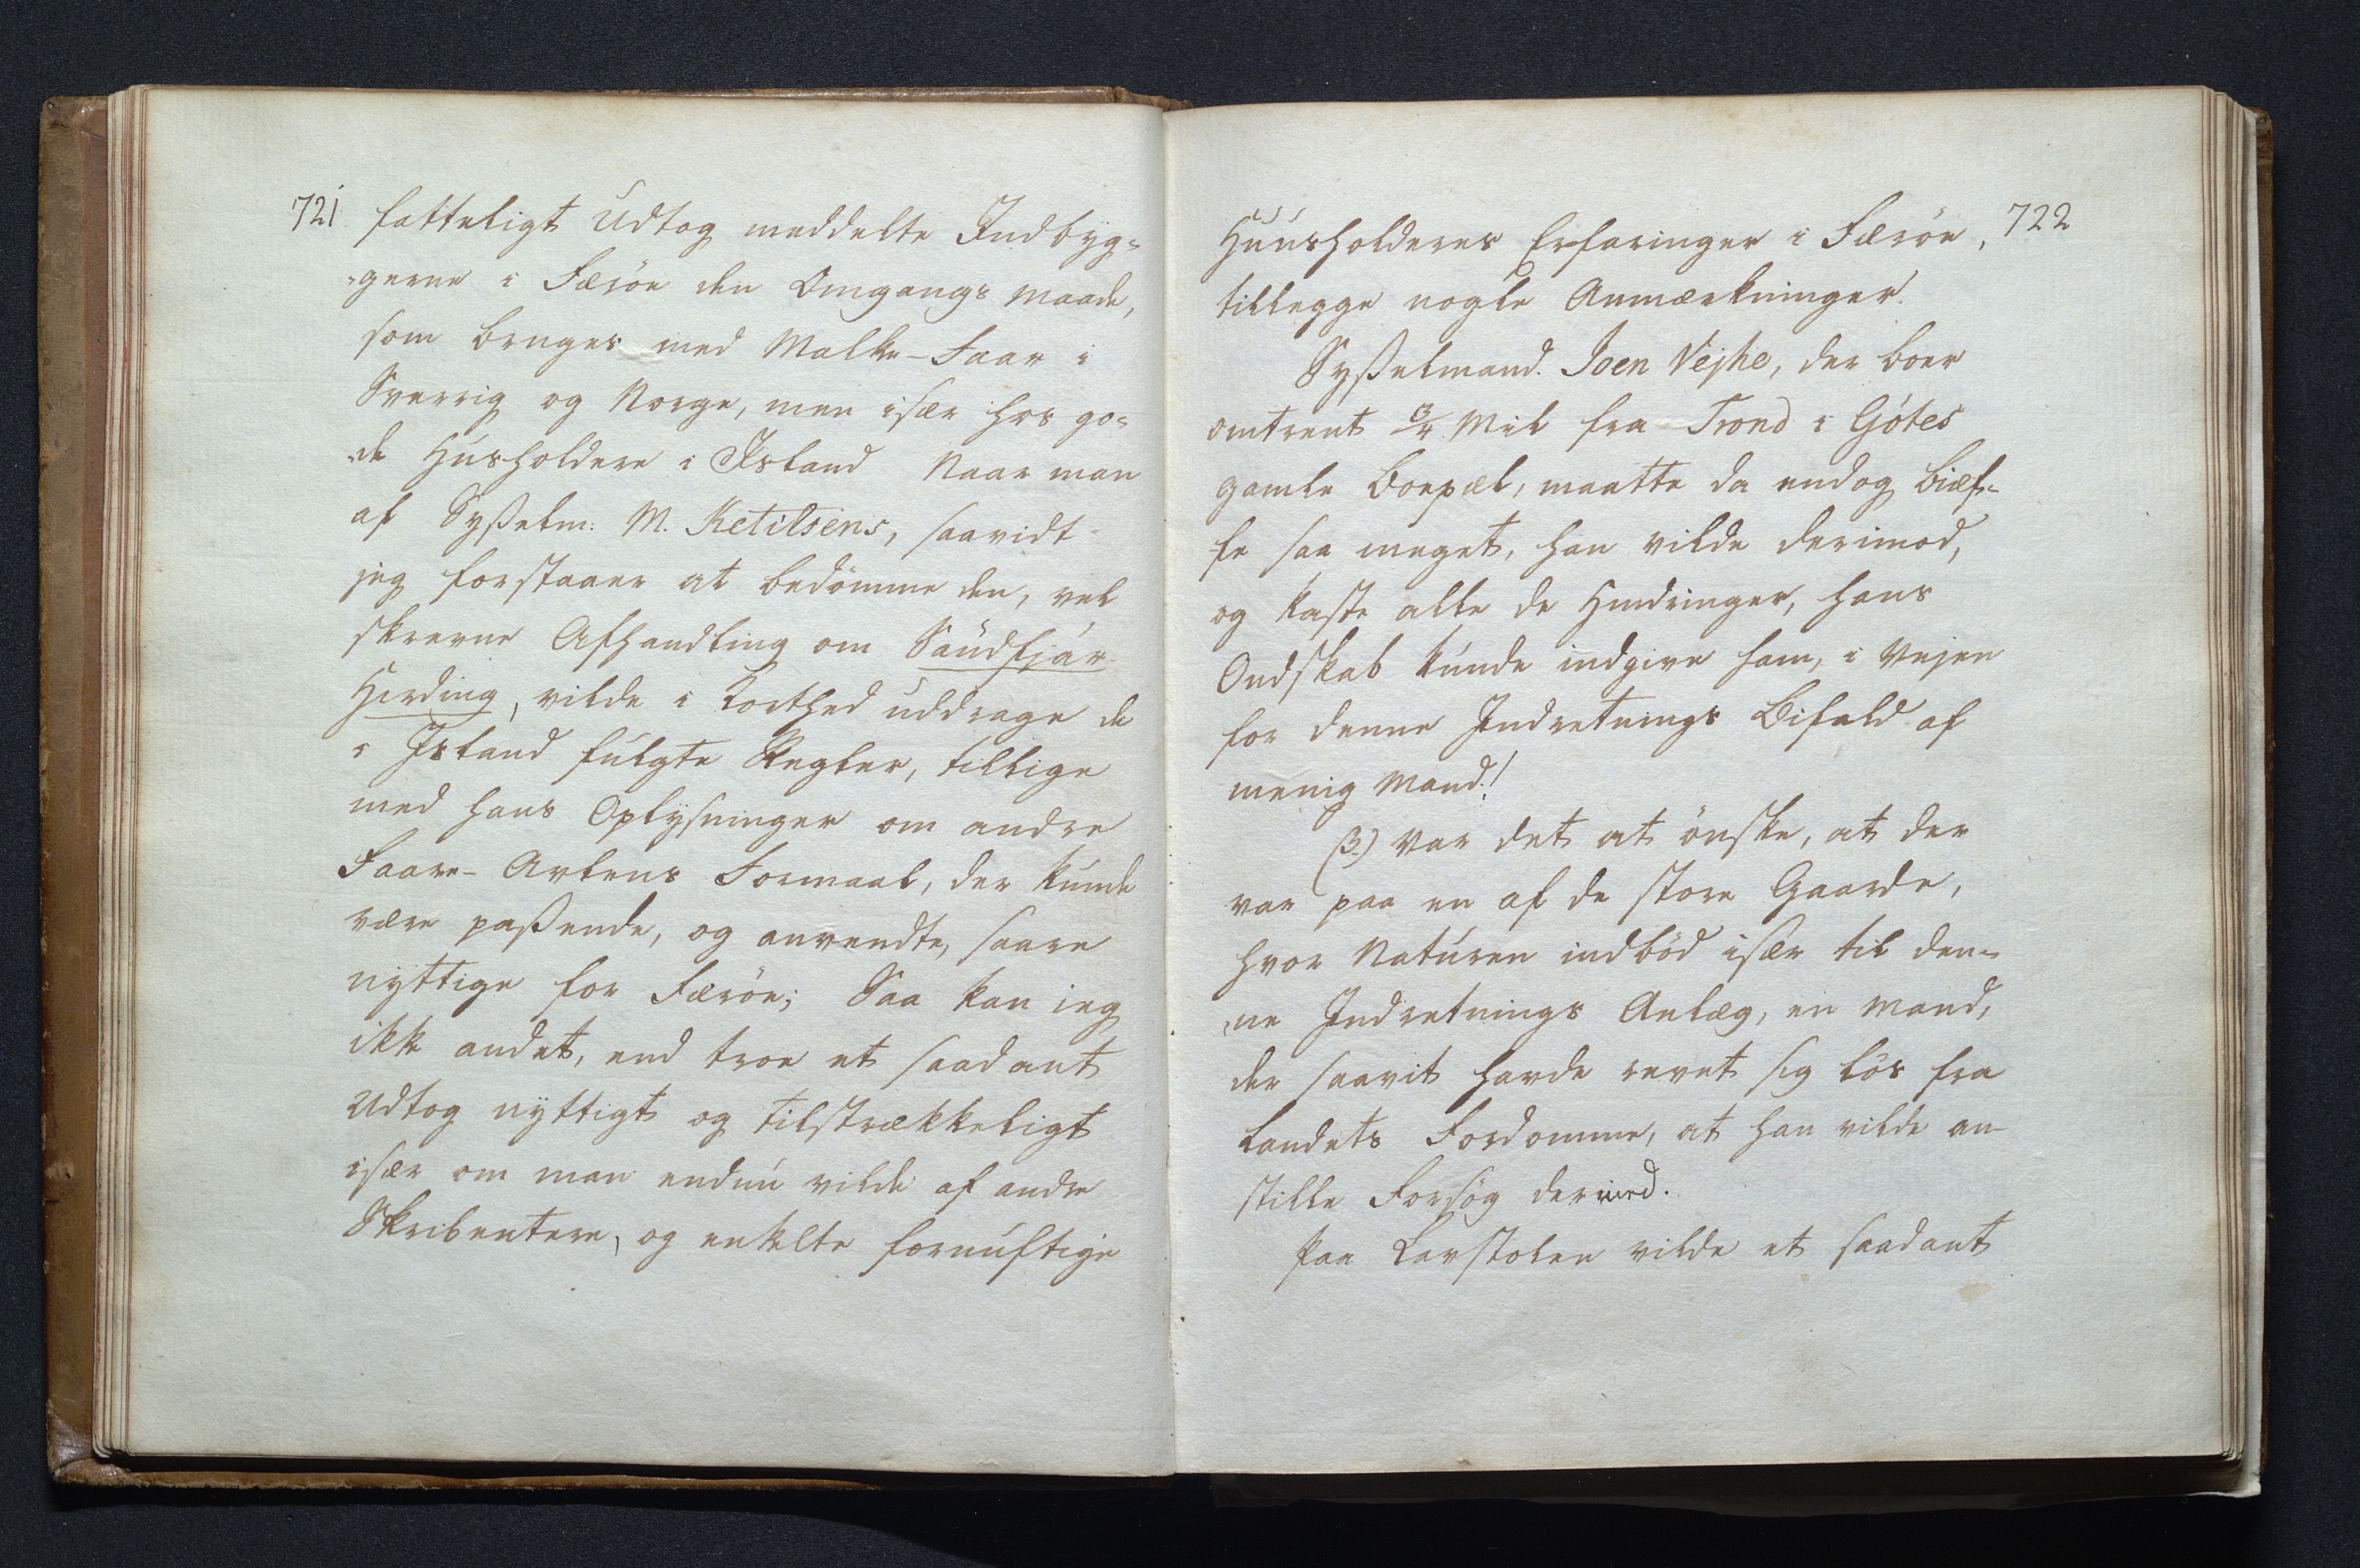 721
fatteligt Udtog meddelte Indbyg-
-gerne i Færöe den Omgangs Maade,
som bruges med Malke-Faar i
Sverrig og Norge, men især hos go-
-de Husholdere i Island Naar man
af Sysselm: M. Ketilsens, saavidt
jeg forstaaer at bedömme den, vel
skrevne Afhandling om Saudfjár
Hirding, vilde i Korthed uddrage de
i Island fulgte Regler, tillige
med hans Oplysninger om andre
Faare-Avlens Formaal, der kunde
være passende, og anvendte, saare
nyttige for Færöe; Saa kan jeg
ikk andet, end troe et saadant
Udtog nyttigt og tilstrækkeligt
især om man endnu vilde af andre
Skribentere, og enkelte fornuftige
722
Huusholderes Erfaringer i Færöe,
tillegge nogle Anmærkninger.
Sysselmand. Joen Vejhe, der boer
omtrent 3/4 Mil fra Trond i Götes
gamle Boepæl, maatte da endog biæf-
fe saa meget, han vilde derimod,
og kaste alle de Hindringer, hans
Ondskab kunde indgive ham, i Vejen
for denne Indretnings Bifald af
menig Mand!
(3.) Var det at önske, at der
var paa en af de store Gaarde,
hvor Naturen indböd især til den-
-ne Indretnings Anlæg, en Mand,
der saavit havde revet sig lös fra
Landets Fordomme, at han vilde an-
stille Forsög dermed.
Paa Lavstolen vilde et saadant